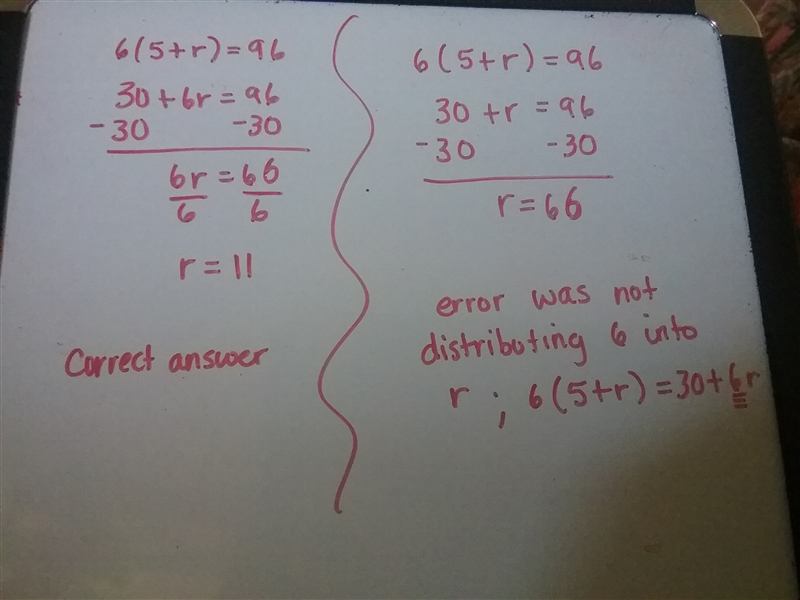 6(5+r)=96
30+6r=96
-30 -30
6r=66
6 6
r=11
Correct answer
6(5+r)=96
30+r=96
-30 -30
r=66
error was not
distributing 6 into
r ; 6(5+r)=30+6r